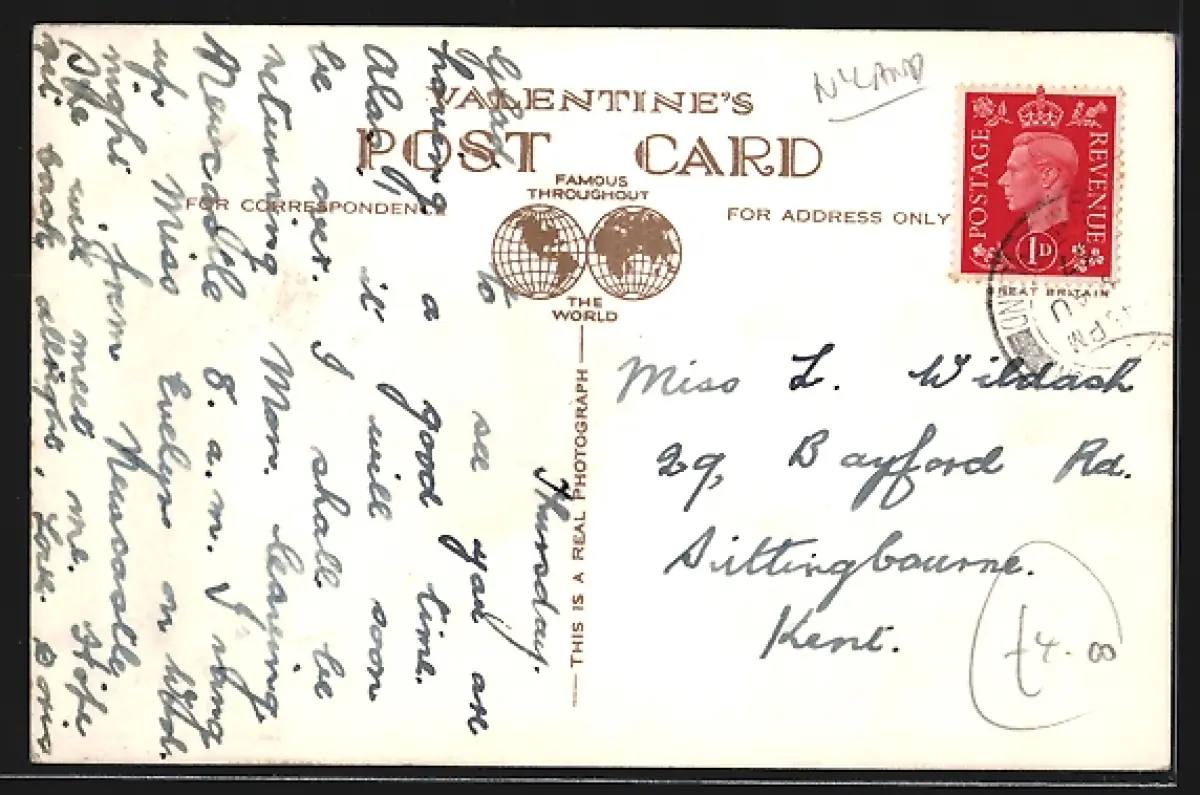 VALENTINE'S
POST CARD
FAMOUS
THROUGHOUT
THE
WORLD
FOR CORRESPONDENCE
FOR ADDRESS ONLY
THIS IS A REAL PHOTOGRAPH
POSTAGE
REVENUE
1D
GREAT BRITAIN
PM
Thursday.
Glad to see you are
having a good time.
Alas, it will soon
be over. I shall be
returning Mon. leaving
Newcastle 8. a.m. I rang
up Miss Evelyn on Wed.
night from Newcastle,
She will meet me. Hope
get back allright, Love. Doris
Miss L. Wildash
29, Bayford Rd.
Sittingbourne.
Kent.
£4.8